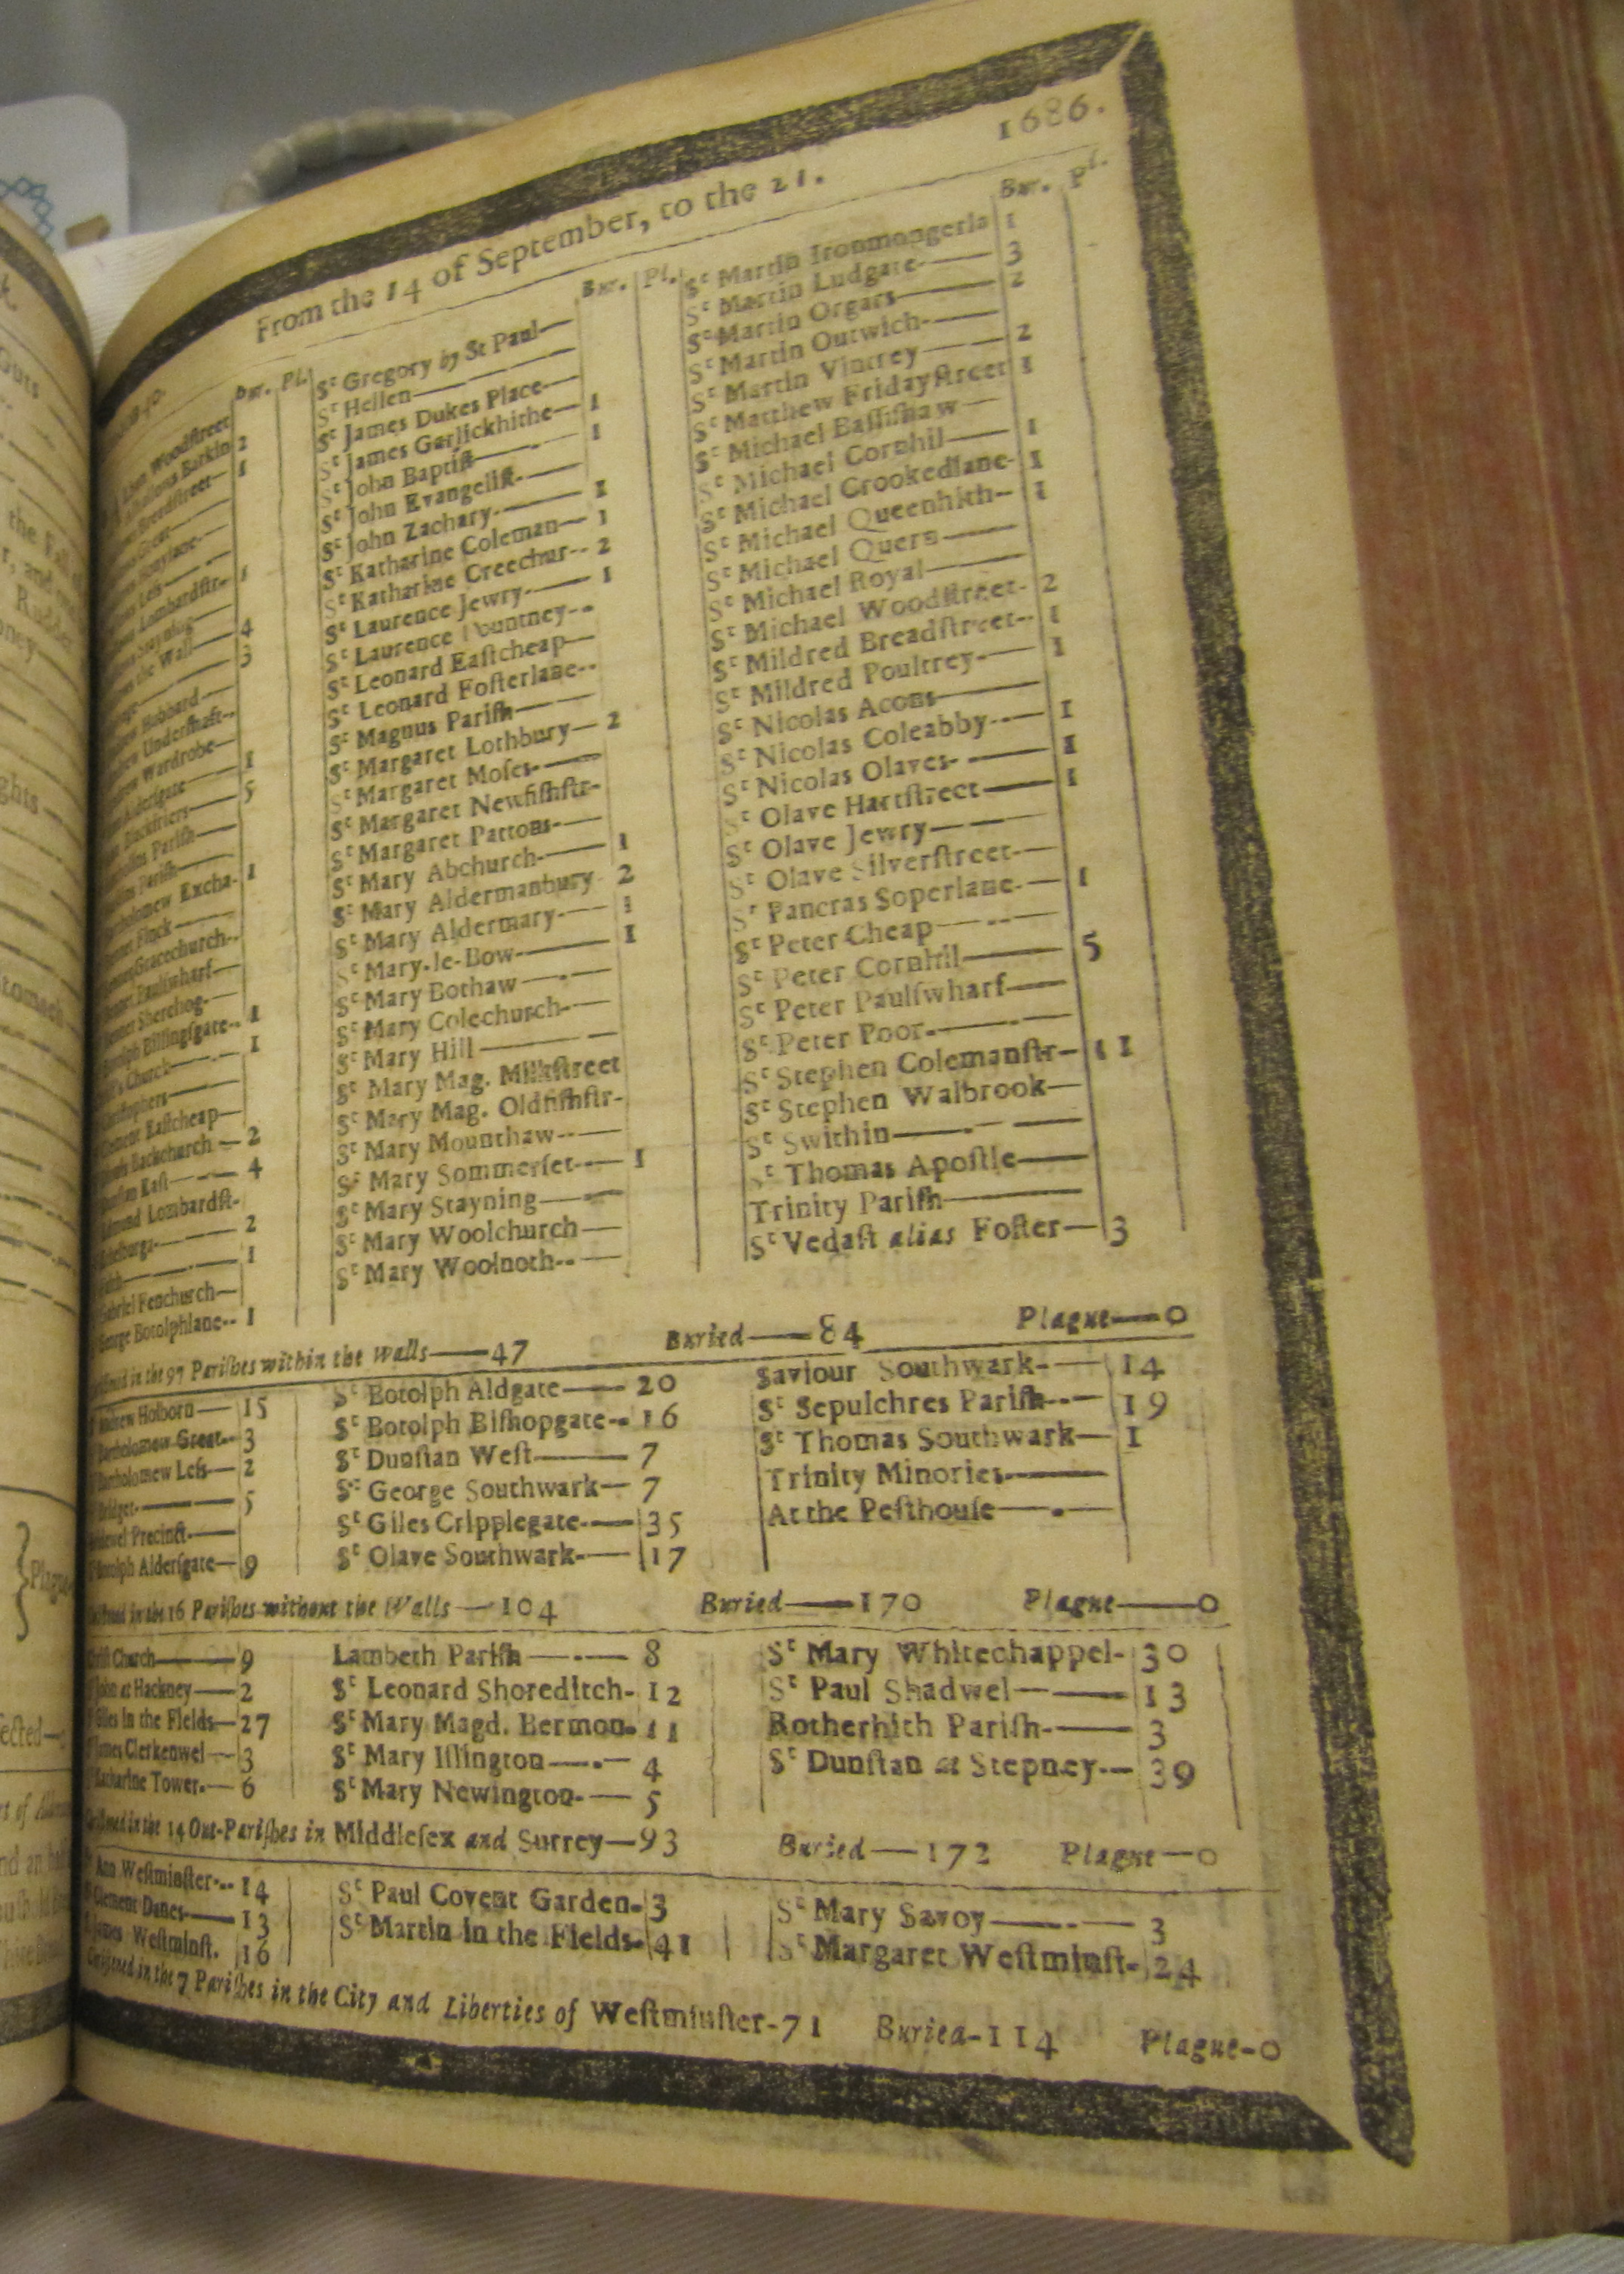 From the 14 of September, to the 21. 1686.
Bur. Pl.
Woodſtreet
Barkin 2
Breadſtreet— 1
Lombardſtr- 1
the Wall— 4
3
Hubbard—
Underſhaft--
Wardrobe—
Alderſgate 1
Blackfriers— 5
Pariſh—
Pariſh—
Excha- 1
Finck—
Gracechurch--
Paulſwharf—
Sherehog-—
Billingſgate-- 1
Church— 1
Eaſtcheap—
Backchurch — 2
Eaſt— 4
Lombardſt-
2
1
Gabriel Fenchurch—
George Botolphlane-- 1
Bur. Pl.
Sᵗ Gregory by St Paul—
Sᵗ Hellen——
Sᵗ James Dukes Place-—
Sᵗ James Garlickhithe— 1
Sᵗ John Baptiſt— 1
Sᵗ John Evangeliſt-—
Sᵗ John Zachary-— 1
Sᵗ Katharine Coleman— 1
Sᵗ Katharine Creechur-- 2
Sᵗ Laurence Jewry-— 1
Sᵗ Laurence Pountney--
Sᵗ Leonard Eaſtcheap—
Sᵗ Leonard Foſterlane--
Sᵗ Magnus Pariſh——
Sᵗ Margaret Lothbury— 2
Sᵗ Margaret Moſes-—
Sᵗ Margaret Newfiſhſtr-
Sᵗ Margaret Pattons-—
Sᵗ Mary Abchurch-— 1
Sᵗ Mary Aldermanbury- 2
Sᵗ Mary Aldermary-— 1
Sᵗ Mary-le-Bow-— 1
Sᵗ Mary Bothaw —-—
Sᵗ Mary Colechurch-—
Sᵗ Mary Hill — —
Sᵗ Mary Mag. Milkſtreet
Sᵗ Mary Mag. Oldfiſhſtr-
Sᵗ Mary Mounthaw--—
Sᵗ Mary Sommerſet--— 1
Sᵗ Mary Stayning——
Sᵗ Mary Woolchurch —
Sᵗ Mary Woolnoth-- —
Bur. Pl.
Sᵗ Martin Ironmongerla 1
Sᵗ Martin Ludgate-— 3
Sᵗ Martin Orgars— 2
Sᵗ Martin Outwich-—
Sᵗ Martin Vintrey— 2
Sᵗ Matthew Fridayſtreet 1
Sᵗ Michael Baſſiſhaw —
Sᵗ Michael Cornhil— 1
Sᵗ Michael Crookedlane- 1
Sᵗ Michael Queenhith— 1
Sᵗ Michael Quern—
Sᵗ Michael Royal—
Sᵗ Michael Woodſtreet- 2
Sᵗ Mildred Breadſtreet-- 1
Sᵗ Mildred Poultrey-— 1
Sᵗ Nicolas Acons—
Sᵗ Nicolas Coleabby--— 1
Sᵗ Nicolas Olaves- — 1
Sᵗ Olave Hartſtreet— 1
Sᵗ Olave Jewry——
Sᵗ Olave Silverſtreet-—
Sᵗ Pancras Soperlane-— 1
Sᵗ Peter Cheap— -- —
Sᵗ Peter Cornhil— 5
Sᵗ Peter Paulſwharf—
Sᵗ Peter Poor-—-—
Sᵗ Stephen Colemanſtr— 11
Sᵗ Stephen Walbrook—
Sᵗ Swithin—- —
Sᵗ Thomas Apoſtle—
Trinity Pariſh—
Sᵗ Vedaſt alias Foſter— 3
in the 97 Pariſhes within the Walls—47 Buried—84 Plague—0
Andrew Holborn— 15
Bartholomew Great-- 3
Bartholomew Leſs— 2
Bridget-— 5
Precinct-—
Botolph Alderſgate— 9
Sᵗ Botolph Aldgate— 20
Sᵗ Botolph Biſhopgate-- 16
Sᵗ Dunſtan Weſt— 7
Sᵗ George Southwark— 7
Sᵗ Giles Cripplegate-— 35
Sᵗ Olave Southwark-— 17
Saviour Southwark-— 14
Sᵗ Sepulchres Pariſh--— 19
Sᵗ Thomas Southwark— 1
Trinity Minories-—
At the Peſthouſe—-—
in the 16 Pariſhes without the Walls —104 Buried—170 Plague—0
Chriſt Church— 9
John at Hackney— 2
Giles in the Fields— 27
James Clerkenwel-— 3
Katharine Tower-— 6
Lambeth Pariſh —-— 8
Sᵗ Leonard Shoreditch- 12
Sᵗ Mary Magd. Bermon- 11
Sᵗ Mary Iſlington—-— 4
Sᵗ Mary Newington-— 5
Sᵗ Mary Whitechappel- 30
Sᵗ Paul Shadwel—— 13
Rotherhith Pariſh-— 3
Sᵗ Dunſtan at Stepney-— 39
in the 14 Out-Pariſhes in Middleſex and Surrey—93 Buried—172 Plague—0
Ann Weſtminſter--- 14
Clement Danes-— 13
James Weſtminſt. 16
Sᵗ Paul Covent Garden- 3
Sᵗ Martin in the Fields- 41
Sᵗ Mary Savoy—-— 3
Sᵗ Margaret Weſtminſt- 24
in the 7 Pariſhes in the City and Liberties of Weſtminſter-71 Buried-114 Plague-0